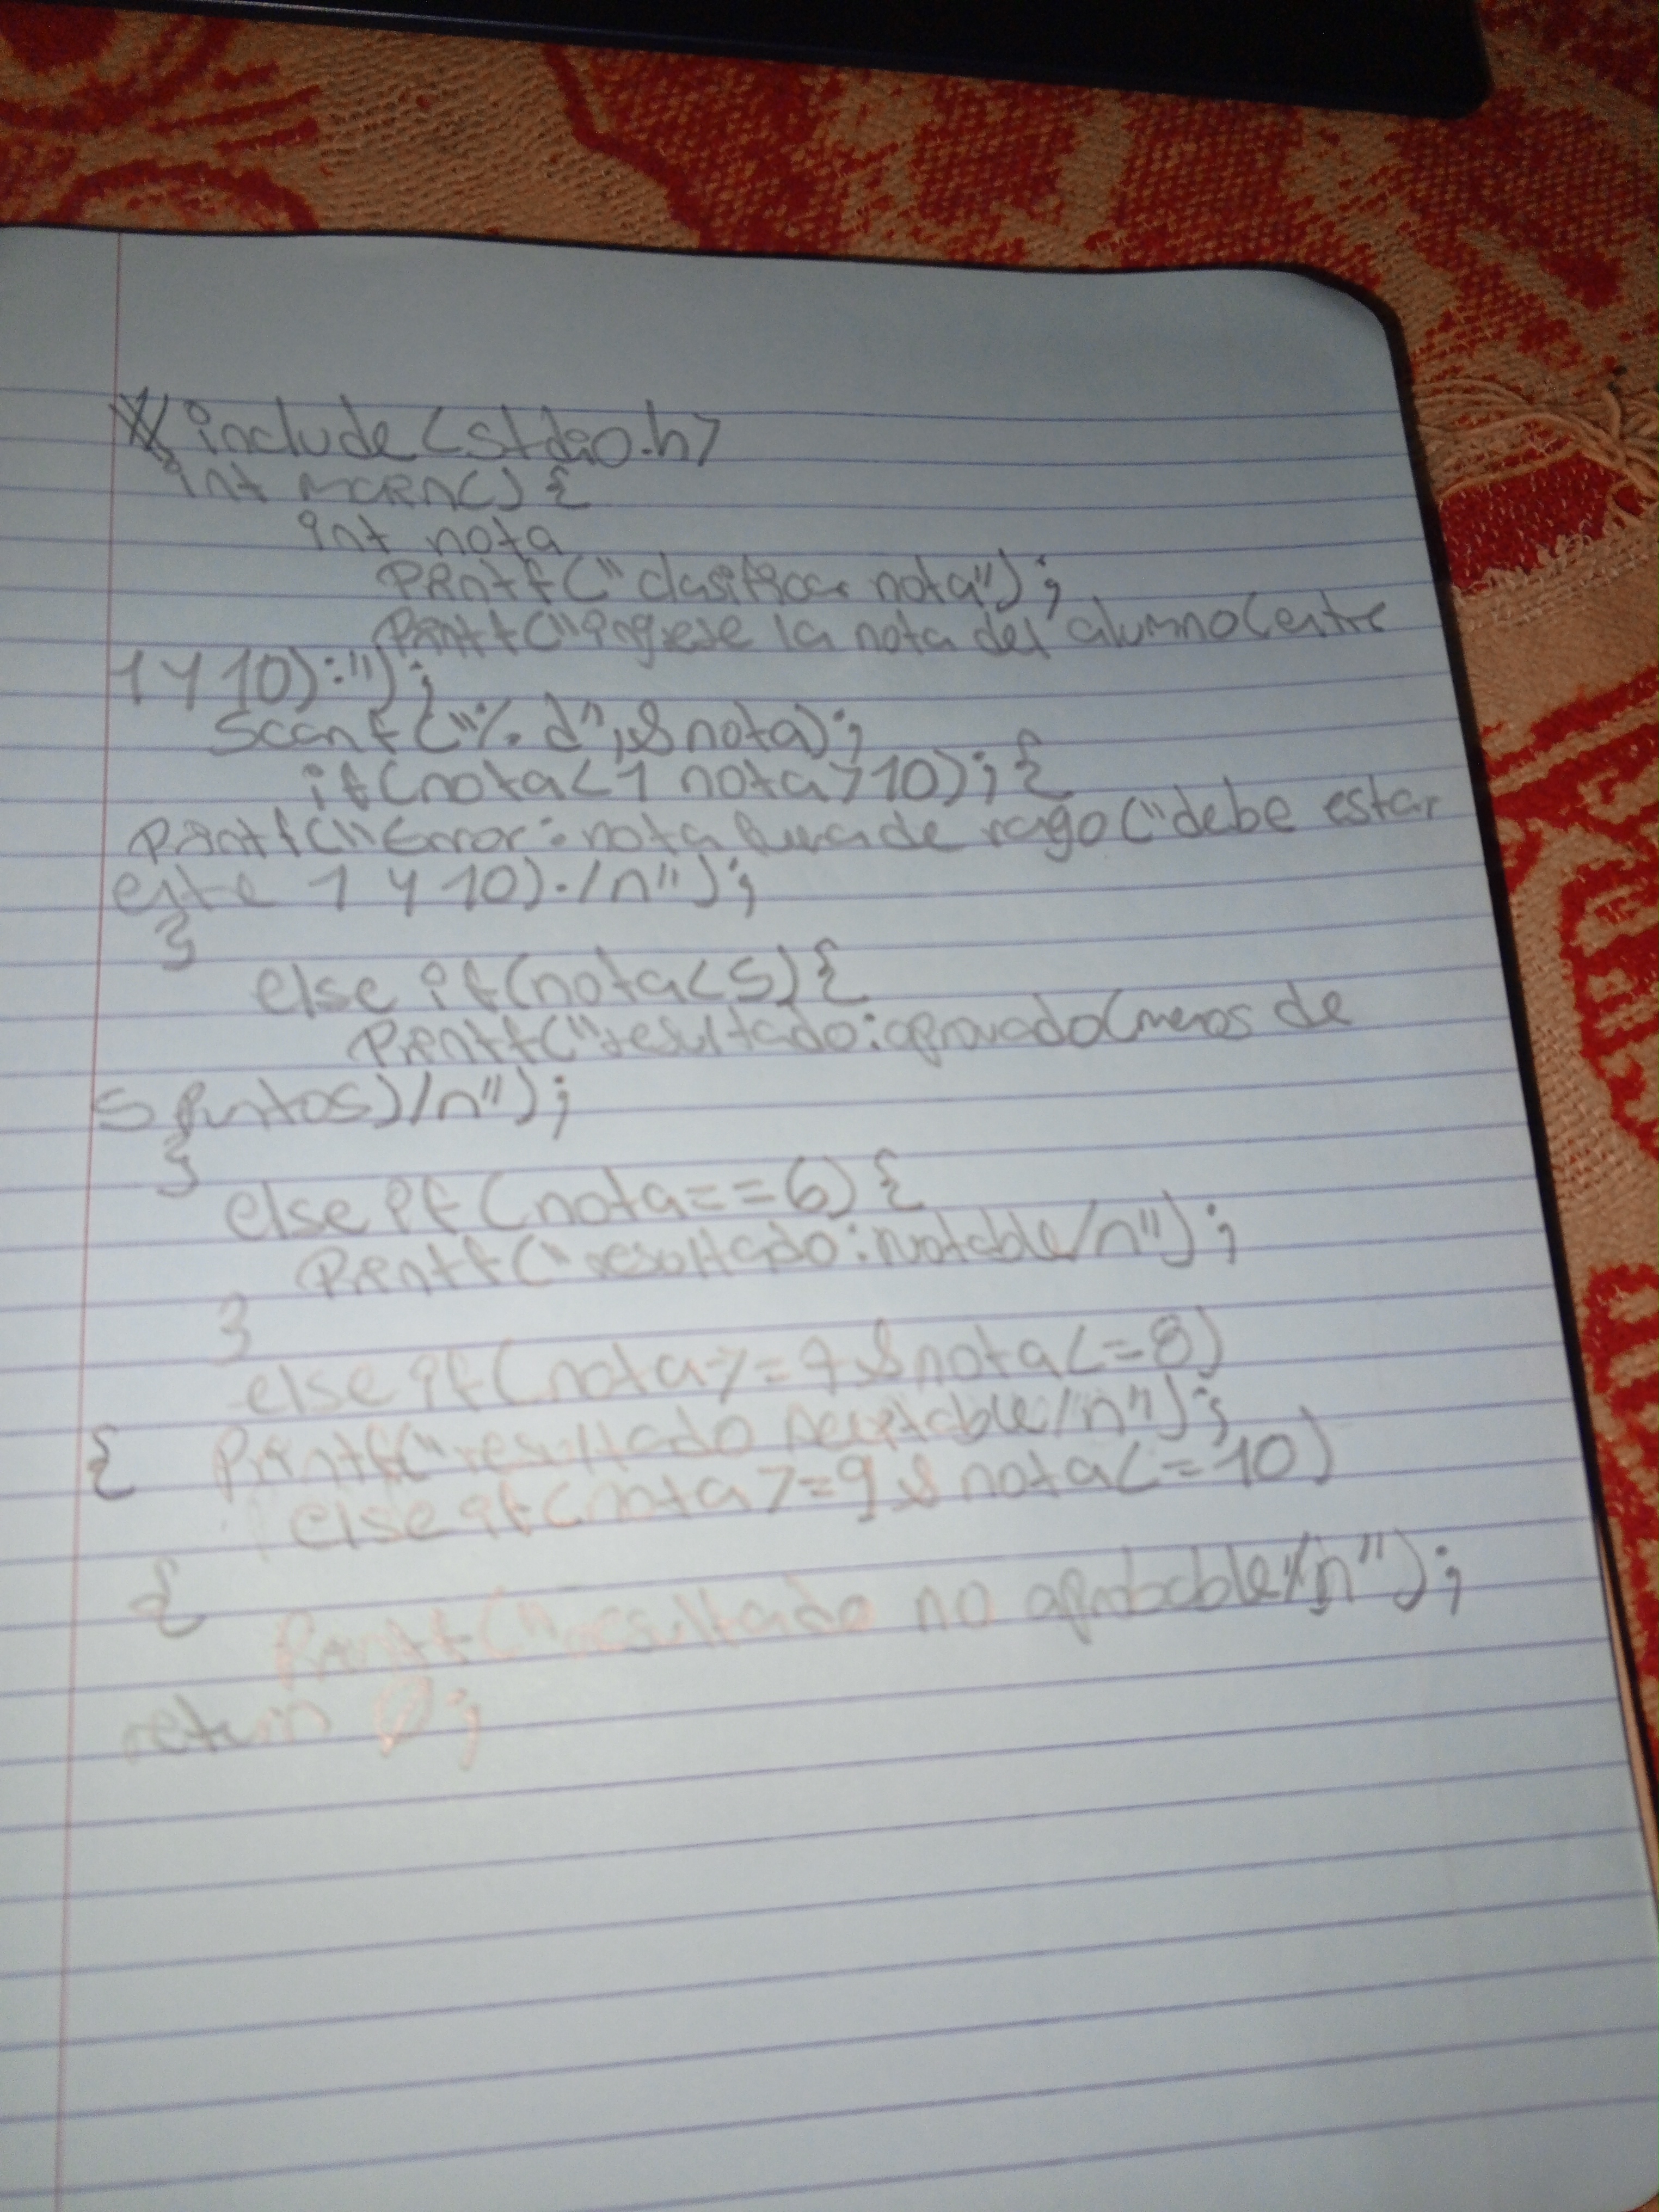 #include <stdio.h>
int main() {
int nota
printf("clasificar nota");
printf("ingrese la nota del alumno (entre
1 y 10):");
scanf("%d",&nota);
if(nota<1 nota>10); {
printf("Error: nota fuera de rago ("debe estar
entre 1 y 10)./n");
}
else if(nota<5){
printf("resultado: aprovado(menos de
5 puntos)/n");
}
else if (nota==6) {
printf("resultado: notable/n");
}
else if(nota>=7 & nota<=8)
{ printf("resultado aceptable/n");
else if(nota>=9 & nota<=10)
{
printf("resultado no aprobable/n");
return 0;